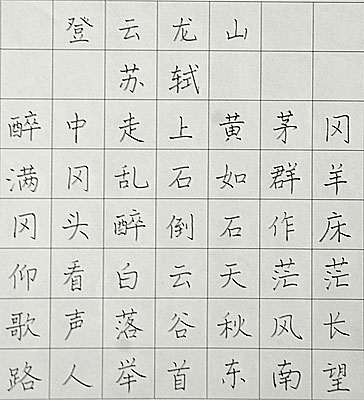 登云龙山
苏轼
醉中走上黄茅冈
满冈乱石如群羊
冈头醉倒石作床
仰看白云天茫茫
歌声落谷秋风长
路人举首东南望